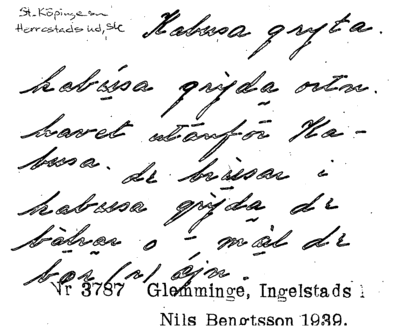 St. Köpinge sn
Herrestads hd, Sk
Kabusa gryta.
kabúsa grýda ortn.
havet utanför Ka-
busa. de brusar i
kabusa grýda de
bålrar o - mål de
bor (r) éjn.
Nr 3787 Glemminge, Ingelstads
Nils Bengtsson 1939.